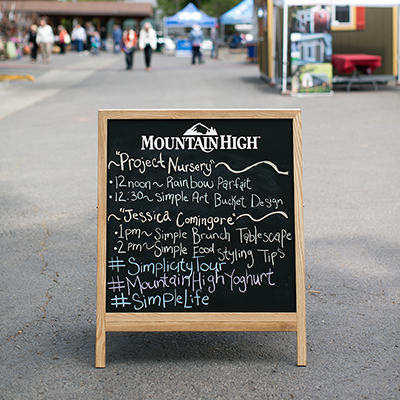 MOUNTAIN HIGH
~"Project Nursery"~
• 12noon~ Rainbow Parfait
• 12:30~ Simple Art Bucket Design
~"Jessica Comingore"~
• 1pm~ Simple Brunch Tablescape
• 2pm~ Simple Food Styling Tips
#SimplicityTour
#MountainHighYoghurt
#SimpleLite